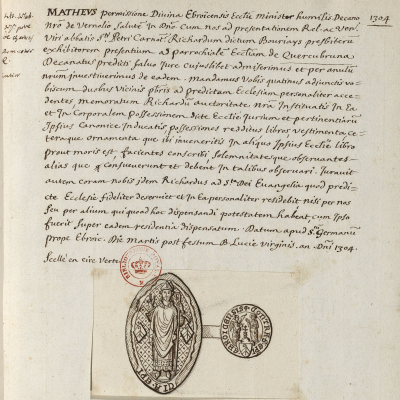 MATHEVS permissione Divina Ebroicensis Ecclie minister humilis Decano
1304
nro de Vernolio Salute In Dno Cum nos ad presentationem Rel. ac Ven.
Viri abbatis Sti Petri Carnat. Richardum dictum Bouriays presbiteru
exhibitorem presentium ad parrochiale Ecctiam de Quercubruna
Decanatus predicti salvo Jure Cujuslibet admiserimus et per anulu
nrum investiverimus de eadem. Mandamus Vobis quatinus adjunctis vo-
biscum duobus Vicinis pbris ad predictam Ecclesiam personaliter acce-
dentes memoratum Richardu auctoritate nra Instituatis In Ea
et In Corporalem Possessionem dicte Ecctie Jurium et pertinentiaru
Ipsius Canonice Inducatis possessiones redditus libros vestimenta ce-
teraque ornamenta que ibi inveneritis In aliquo Ipsius Ecctie libro
prout moris est, facientes conscribi Solemnitates que observantes
alias que consueverunt et debent In talibus observari. Juravit
autem coram nobis idem Richardus ad Sta Dei Euangelia quod predi-
cte Ecclesie fideliter deserviet et In Ea personaliter residebit nisi per nos
seu per alium qui quod hac dispensandi potestatem habeat, cum Ipso
fuerit super eadem residentia dispensatum. Datum apud Stum Germanum
prope Ebroic. Die Martis post festum B. Lucie virginis. an. Dni 1304.
Scellé en cire Verte